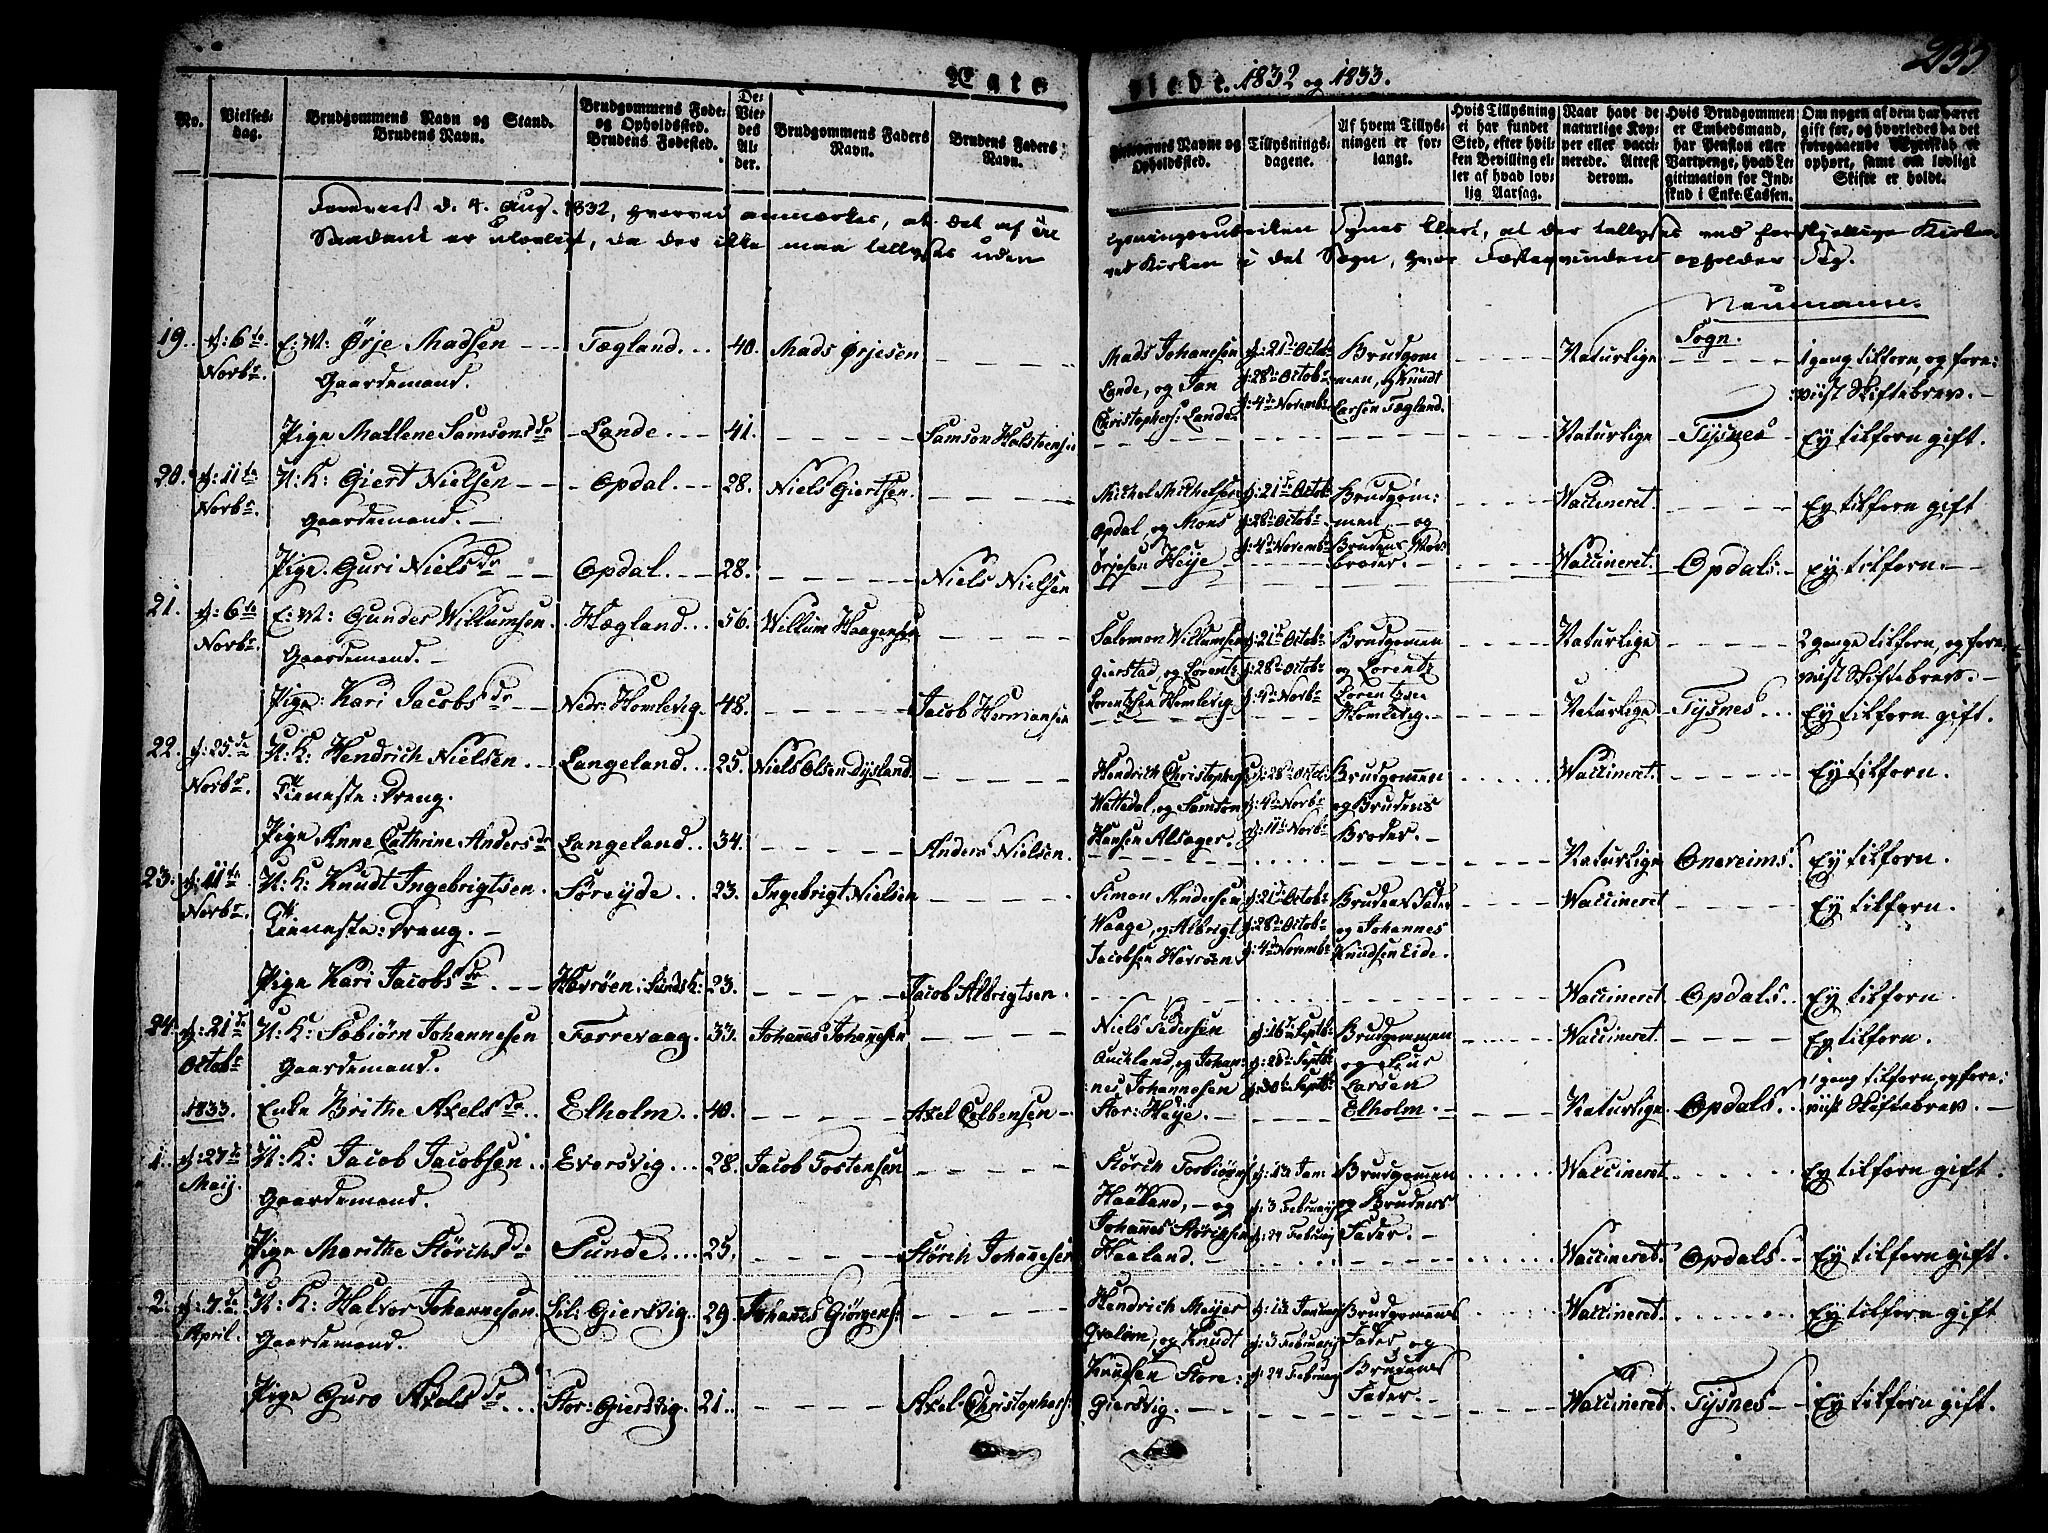 Egte viede. 1832 og 1833.
No. Vielses-dag. Brudgommens Navn og Stand. Brudens Navn. Brudgommens Føde- og Opholdssted. Brudens Fødested. De Viedes Alder. Brudgommens Faders Navn. Brudens Faders Navn.
Forlovernes Navne og Opholdssted. Tillysnings-dagene. Af hvem Tillysningen er forlangt. Hvis Tillysning ei har fundet Sted, efter hvilken Bevilling eller af hvad lovlig Aarsag. Naar have de naturlige Kopper eller vaccinerede. Attest derom. Hvis Brudgommen er Embedsmand, har Pension eller Vartpenge, hvad Legitimation for Indskud i Enke-Cassen. Om nogen af dem har været gift før, og hvorledes da det foregaaende Ægteskab er ophørt, samt om lovligt Skifte er holdt.
d. 4. Aug. 1832, hvorved anmærkes, at det af
Standent er ulovligt, da der ikke maa tillyses uden
synes klart, at der tillyses ved forskjellige Kirker
ved Kirken i det Sogn, hvor Fæstequinden opholder sig.
Neumann.
Sogn.
19. d: 6te Novbr. E: M: Ørje Madsen Gaardemand. Tægland. 40. Mads Ørjesen
Mads Johannesen Lande, og Jan Christophers: Lande. d: 21de Octobr d: 28de Octobr d: 4de Novembr Brudgommen, og Knudt Larsen Tægland. Naturlige 1 gang tilforn, og foreviist Skiftebrev.
Pige Mallene Samsonsdr Lande 41. Samson Halsteensen
Naturlige Tysnes Ey tilforn gift.
20. d: 11te Novbr U: K: Giert Nielsen Gaardemand. Opdal. 28. Niels Giertsen.
Michel Michelsen Opdal, og Mons Ørjesen Heye d: 21de Octobr d: 28de Octobr d: 4de Novembr Brudgommen og Brudens Broder. Vaccineret. Ey tilforn gift
Pige. Guri Nielsdr Opdal. 28. Niels Nielsen
Vaccineret. Opdals. Ey tilforn.
21. d: 6te Novbr E: M: Gunder Willumsen. Gaardemand. Hægland. 56. Willum Haagensen
Salomon Villumsen Gierstad, og Lorentz Lorentzsen Hemlevig d: 21de Octobr d: 28de Octobr d: 4de Novbr Brudgommen og Lorentz Lorentzsen Hemlevig. Naturlige 2 gange tilforn, og foreviist Skiftebrev.
Pige. Kari Jacobsdr Nedr: Homlevig. 48. Jacob Hermansen
Naturlige Tysnes Ey tilforn gift.
22. d: 25de Novbr. U: K: Hendrich Nielsen Tieneste: Dreng. Langeland. 25. Niels Olsen Dysland.
Hendrich Christophers: Wattedal, og Samson Hansen Alsager. d: 28de Octob: d: 4de Novbr d: 11te Novbr Brudgommen og Brudens Broder. Vaccineret. Ey tilforn.
Pige Anne Cathrine Andersdr Langeland. 34. Anders Nielsen.
Naturlige Onareims. Ey tilforn.
23. d: 11te Novbr. U: K: Knudt Ingebrigtsen Tieneste: Dreng. Søreyde. 23. Ingebrigt Nielsen
Simon Andersen Waage, og Albrigt Jacobsen Hovrøen. d: 21de Octobr d: 28de Octobr d: 4de Novembr Brudens Fader og Johannes Knudsen Eide. Vaccineret Ey tilforn.
Pige Kari Jacobsdr Hovrøen: Sunds K: 23. Jacob Albrigtsen.
Vaccineret Opdals. Ey tilforn.
24. d: 21de Octobr U: K: Tobiørn Johannesen Gaardemand. Færrevaag. 33. Johanes Johannesen
Niels Pedersen Auckland, og Johannes Johannesen Stor: Heye. d: 16de Septbr d: 23de Septbr d: 30te Septbr Brudgommen og Larsen Elholm. Vaccineret Ey tilforn.
1833. Enke Brithe Axelsdr Elholm. 40. Axel Colbensen
Naturlige Opdals. 1 gang tilforn, og foreviist Skiftebrev.
1. d: 27de Maij. U: K: Jacob Jacobsen Gaardemand. Eversvig. 28. Jacob Tostensen
Størch Torbiørns: Haaland, og Johannes Størchsen Haaland. d: 13 Jan: d: 3 Februarij d: 24 Februarij Brudgommen og Brudens Fader. Vaccineret. Ey tilforn gift.
Pige Marithe Størchsdr Sunde. 25. Størch Johannesen
Vaccineret. Opdals. Ey tilforn gift.
2. d: 7de April. U: K: Halvor Johannesen Gaardemand. Lil: Giersvig. 29. Johannes Giørgens:
Hendrich Meyer Qvaløen, og Knudt Knudsen Store: Giersvig. d: 13 Januarij d: 3 Februarij d: 24 Februarij Brudgommens Fader, og Brudens Fader. Vaccineret. Ey tilforn gift
Pige Guro Axelsdr Stor: Giersvig. 21. Axel Christophers:
Vaccineret. Tysnes Ey tilforn gift.